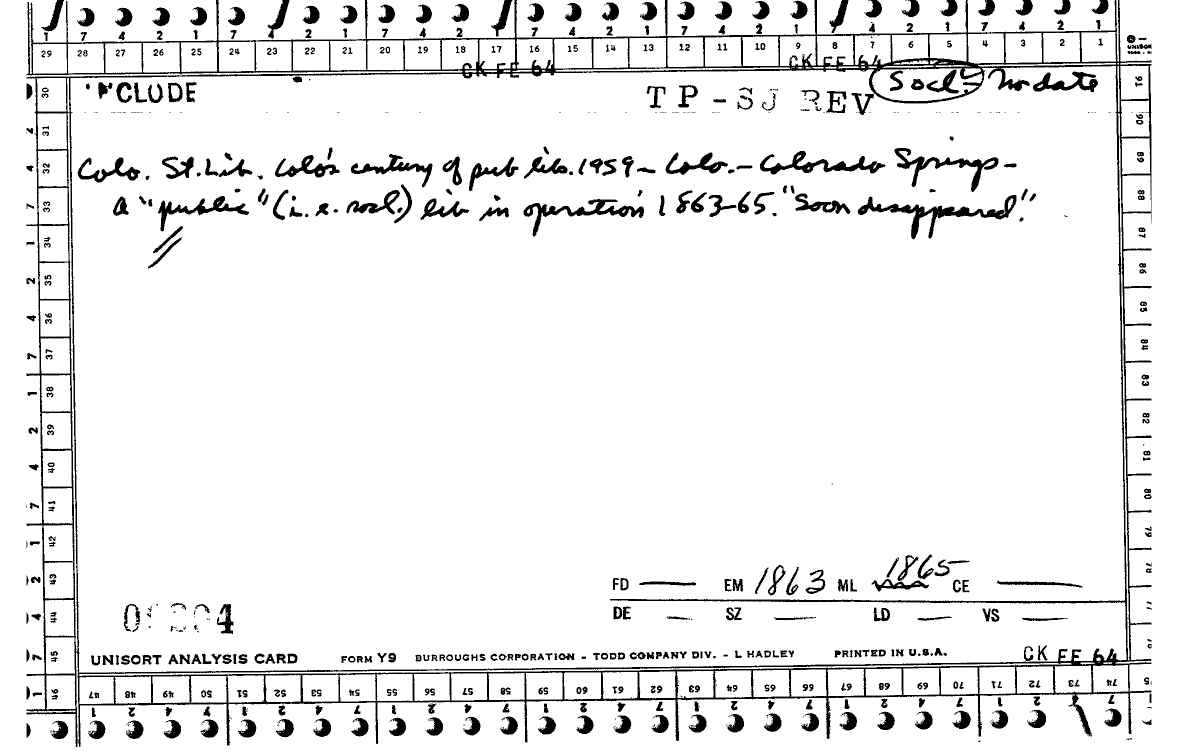 1 7 4 2 1 7 4 2 1 7 4 2 1 7 4 2 1 7 4 2 1 7 4 2 1 7 4 2 1
29 28 27 26 25 24 23 22 21 20 19 18 17 16 15 14 13 12 11 10 9 8 7 6 5 4 3 2 1
CK FE 64 CK FE 64
CLUDE TP-SJ REV Socl No date
Colo. St. Lib. Colo's century of pub libs. 1959 - Colo. - Colorado Springs -
a "public" (i.e. socl.) lib in operation 1863-65. "Soon disappeared."
FD EM 1863 ML 1865 CE
DE SZ LD VS
4
UNISORT ANALYSIS CARD FORM Y9 BURROUGHS CORPORATION - TODD COMPANY DIV. - L HADLEY PRINTED IN U.S.A. CK FE 64
47 48 49 50 51 52 53 54 55 56 57 58 59 60 61 62 63 64 65 66 67 68 69 70 71 72 73 74 75
30 31 32 33 34 35 36 37 38 39 40 41 42 43 44 45 46
91 90 89 88 87 86 85 84 83 82 81 80 79 78 77